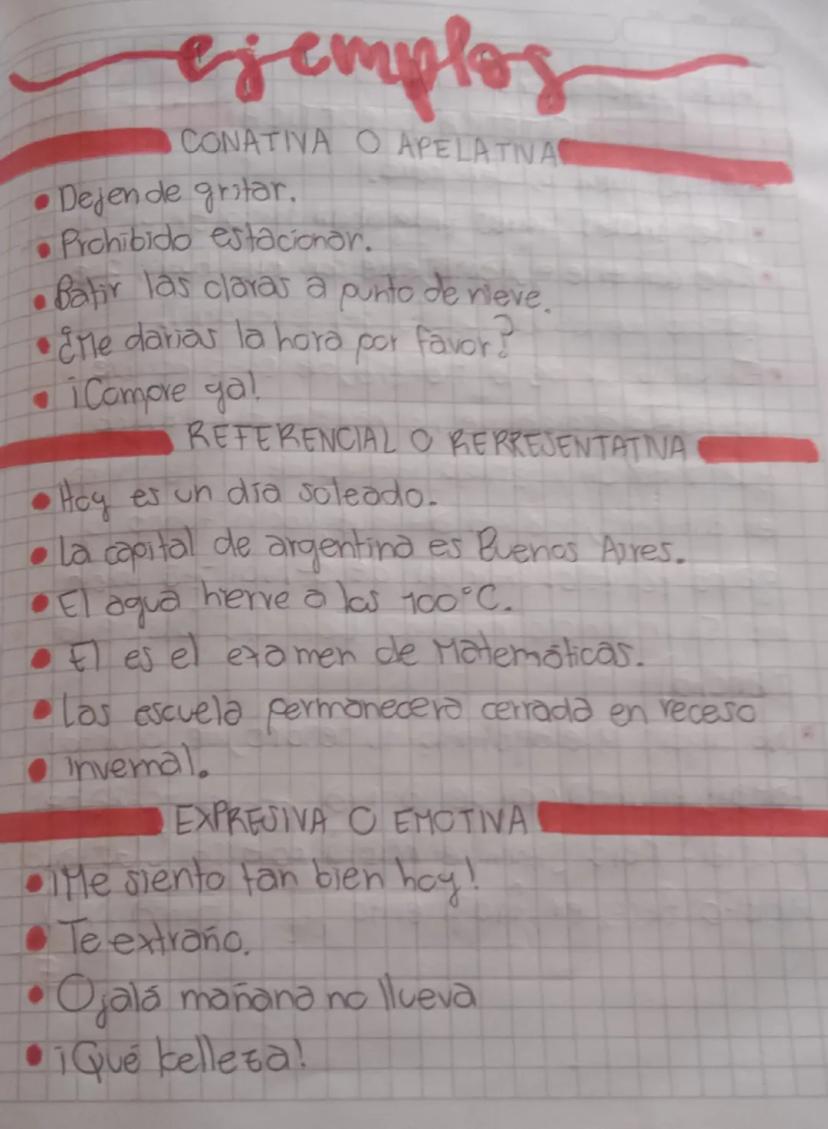 ejemplos
CONATIVA O APELATIVA
• Dejen de gritar.
• Prohibido estacionar.
• Batir las claras a punto de nieve.
• ¿Me darías la hora por favor?
• ¡Compre ya!
REFERENCIAL O REPRESENTATIVA
• Hoy es un día soleado.
• La capital de argentina es Buenos Aires.
• El agua hierve a los 100°C.
• El es el examen de Matemáticas.
• Las escuela permanecera cerrada en receso
• invernal.
EXPRESIVA O EMOTIVA
• ¡Me siento tan bien hoy!
• Te extraño.
• Ojalá mañana no llueva
• ¡Qué belleza!